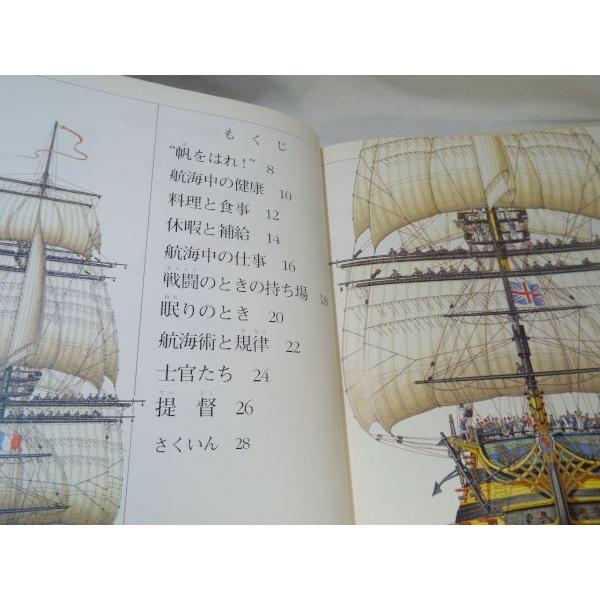 もくじ
“帆をはれ！” 8
航海中の健康 10
料理と食事 12
休暇と補給 14
航海中の仕事 16
戦闘のときの持ち場 18
眠りのとき 20
航海術と規律 22
士官たち 24
提督 26
さくいん 28